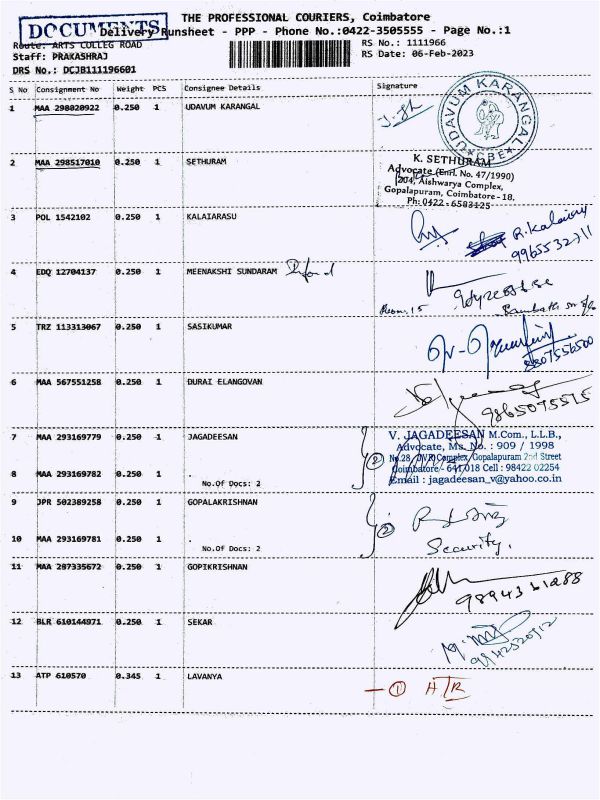 THE PROFESSIONAL COURIERS, Coimbatore
DOCUMENTS
Delivery Runsheet - PPP - Phone No.:0422-3505555 - Page No.:1
Route: ARTS COLLEG ROAD
RS No.: 1111966
Staff: PRAKASHRAJ
RS Date: 06-Feb-2023
DRS No.: DCJB111196601
S No Consignment No Weight PCS Consignee Details Signature
1 MAA 298020922 0.250 1 UDAVUM KARANGAL
UDAVUM KARANGAL
CBE
2 MAA 298517010 0.250 1 SETHURAM
K. SETHURAM
Advocate (Enrl. No. 47/1990)
204, Aishwarya Complex,
Gopalapuram, Coimbatore - 18.
Ph: 0422 - 6583125
3 POL 1542102 0.250 1 KALAIARASU
9965532711
4 EDQ 12704137 0.250 1 MEENAKSHI SUNDARAM
Room. 15
5 TRZ 113313067 0.250 1 SASIKUMAR
6 MAA 567551258 0.250 1 DURAI ELANGOVAN
7 MAA 293169779 0.250 1 JAGADEESAN
V. JAGADEESAN M.Com., L.L.B.,
Advocate, Ms. No. : 909 / 1998
No.28, DVR Complex, Gopalapuram 2nd Street
Coimbatore - 641 018 Cell : 98422 02254
Email : jagadeesan_v@yahoo.co.in
2
8 MAA 293169782 0.250 1 .
No.Of Docs: 2
9 JPR 502389258 0.250 1 GOPALAKRISHNAN
2
10 MAA 293169781 0.250 1 .
No.Of Docs: 2
Security.
11 MAA 287335672 0.250 1 GOPIKRISHNAN
12 BLR 610144971 0.250 1 SEKAR
13 ATP 610570 0.345 1 LAVANYA
1